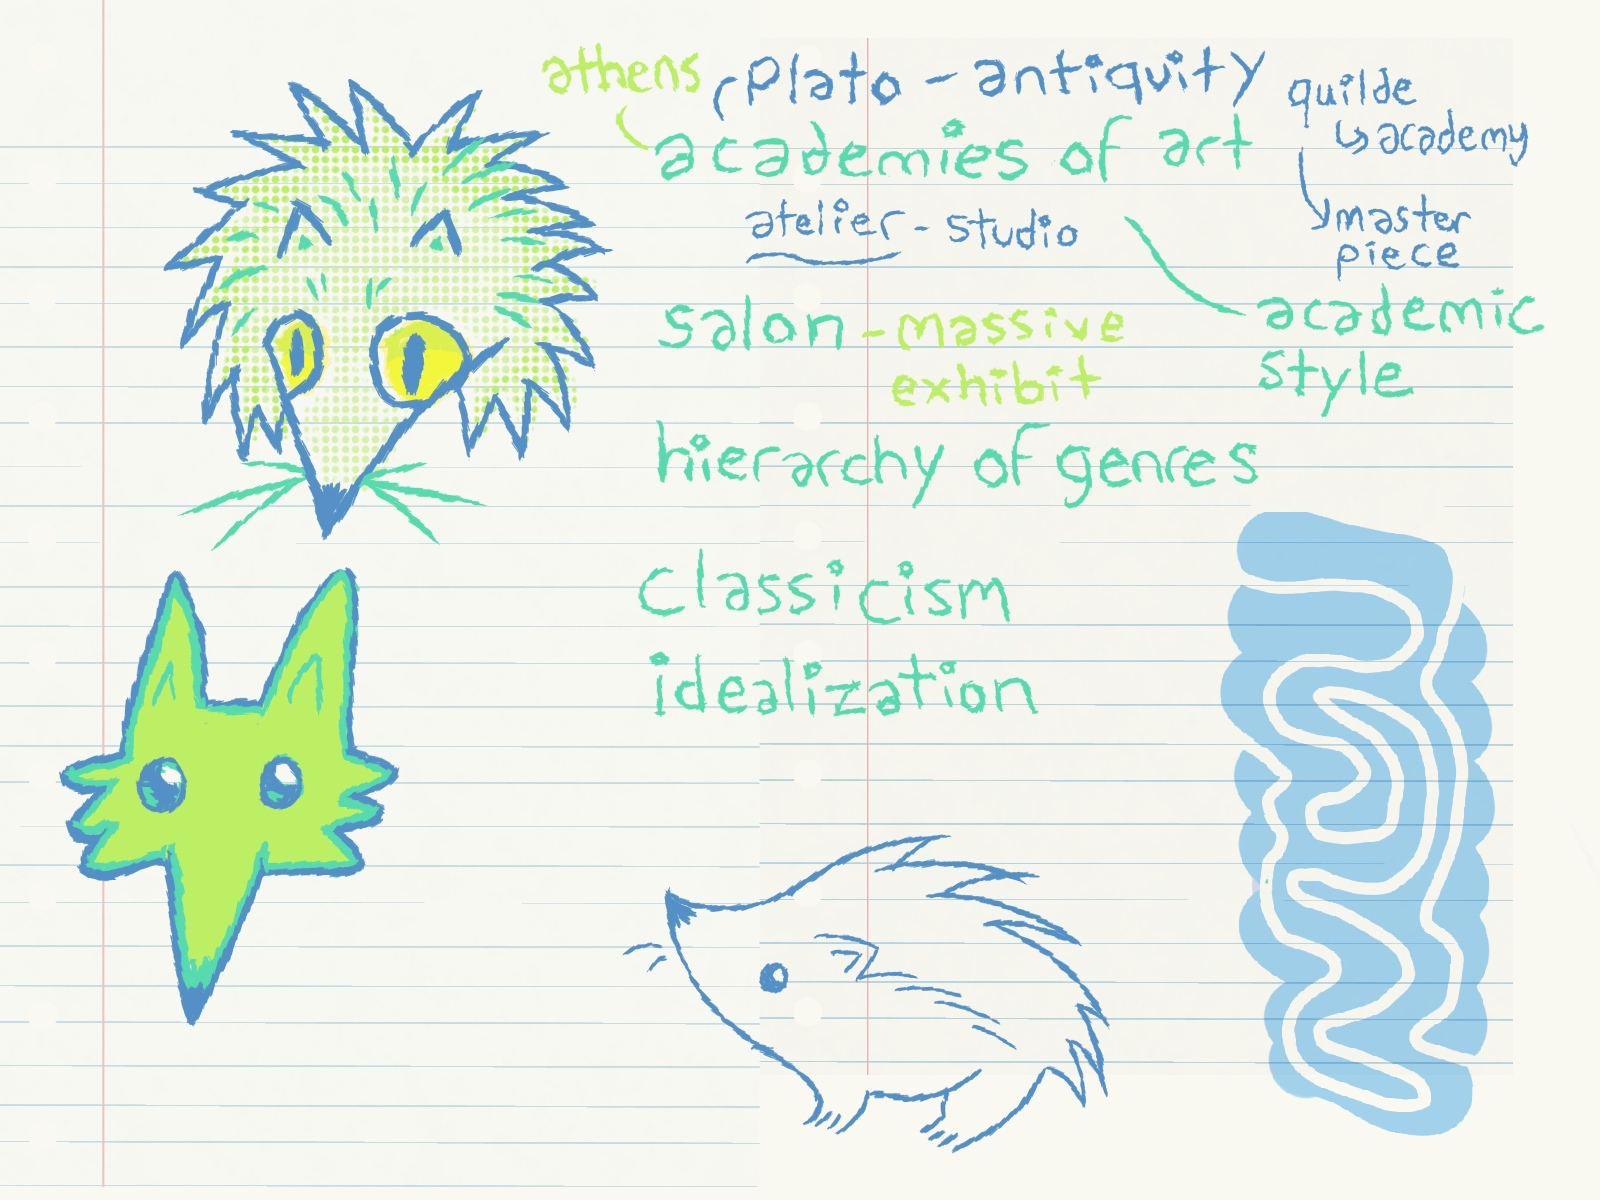 athens
plato - antiquity
quilde
academy
academies of art
master
piece
atelier - studio
academic
style
salon - massive
exhibit
hierarchy of genres
classicism
idealization